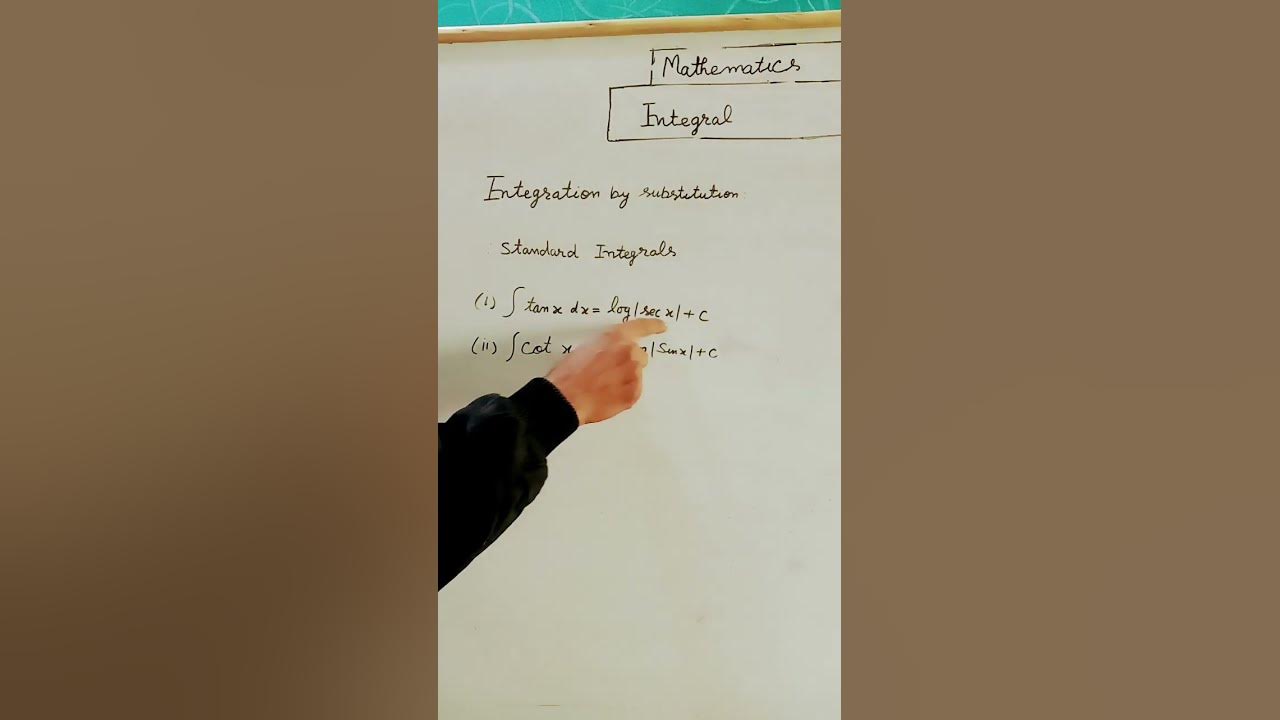 Mathematics
Integral
Integration by substitution
Standard Integrals
(i) ∫ tanx dx = log|sec x| + c
(ii) ∫ cot x |Sinx| + c